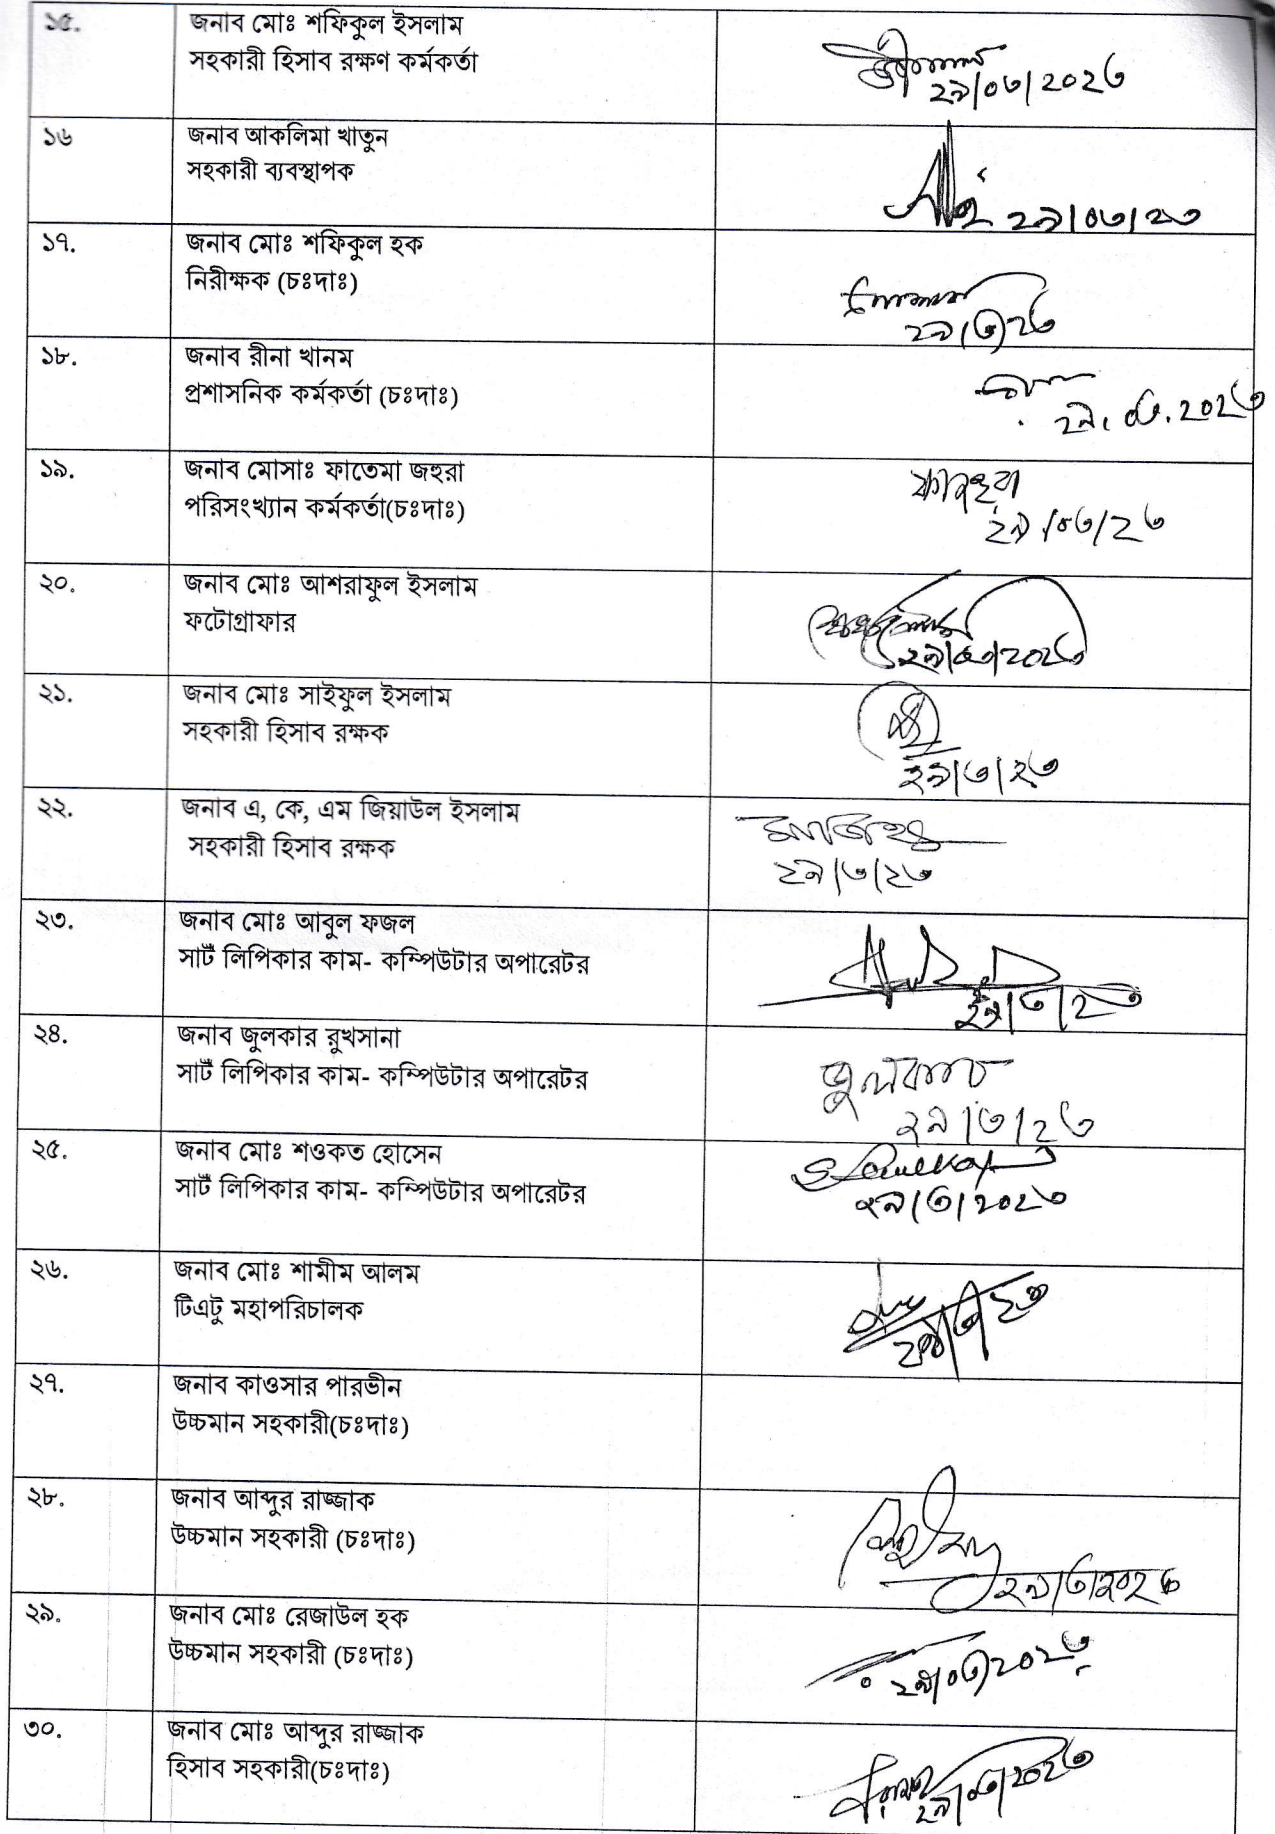 ১৫.
জনাব মোঃ শফিকুল ইসলাম
সহকারী হিসাব রক্ষণ কর্মকর্তা
২৯/০৩/২০২৩
১৬
জনাব আকলিমা খাতুন
সহকারী ব্যবস্থাপক
২৯/০৩/২৩
১৭.
জনাব মোঃ শফিকুল হক
নিরীক্ষক (চঃদাঃ)
২৯/৩/২৩
১৮.
জনাব রীনা খানম
প্রশাসনিক কর্মকর্তা (চঃদাঃ)
২৯.০৩.২০২৩
১৯.
জনাব মোসাঃ ফাতেমা জহুরা
পরিসংখ্যান কর্মকর্তা(চঃদাঃ)
২৯/০৩/২৩
২০.
জনাব মোঃ আশরাফুল ইসলাম
ফটোগ্রাফার
২৯/০৩/২০২৩
২১.
জনাব মোঃ সাইফুল ইসলাম
সহকারী হিসাব রক্ষক
২৯/৩/২৩
২২.
জনাব এ, কে, এম জিয়াউল ইসলাম
সহকারী হিসাব রক্ষক
২৯/৩/২৩
২৩.
জনাব মোঃ আবুল ফজল
সার্ট লিপিকার কাম- কম্পিউটার অপারেটর
২৯/৩/২৩
২৪.
জনাব জুলকার রুখসানা
সার্ট লিপিকার কাম- কম্পিউটার অপারেটর
২৯/৩/২৩
২৫.
জনাব মোঃ শওকত হোসেন
সার্ট লিপিকার কাম- কম্পিউটার অপারেটর
২৯/৩/২০২৩
২৬.
জনাব মোঃ শামীম আলম
টিএটু মহাপরিচালক
২৯/৩/২৩
২৭.
জনাব কাওসার পারভীন
উচ্চমান সহকারী(চঃদাঃ)
২৮.
জনাব আব্দুর রাজ্জাক
উচ্চমান সহকারী (চঃদাঃ)
২৯/৩/২০২৩
২৯.
জনাব মোঃ রেজাউল হক
উচ্চমান সহকারী (চঃদাঃ)
২৯/০৩/২০২৩
৩০.
জনাব মোঃ আব্দুর রাজ্জাক
হিসাব সহকারী(চঃদাঃ)
২৯/০৩/২০২৩